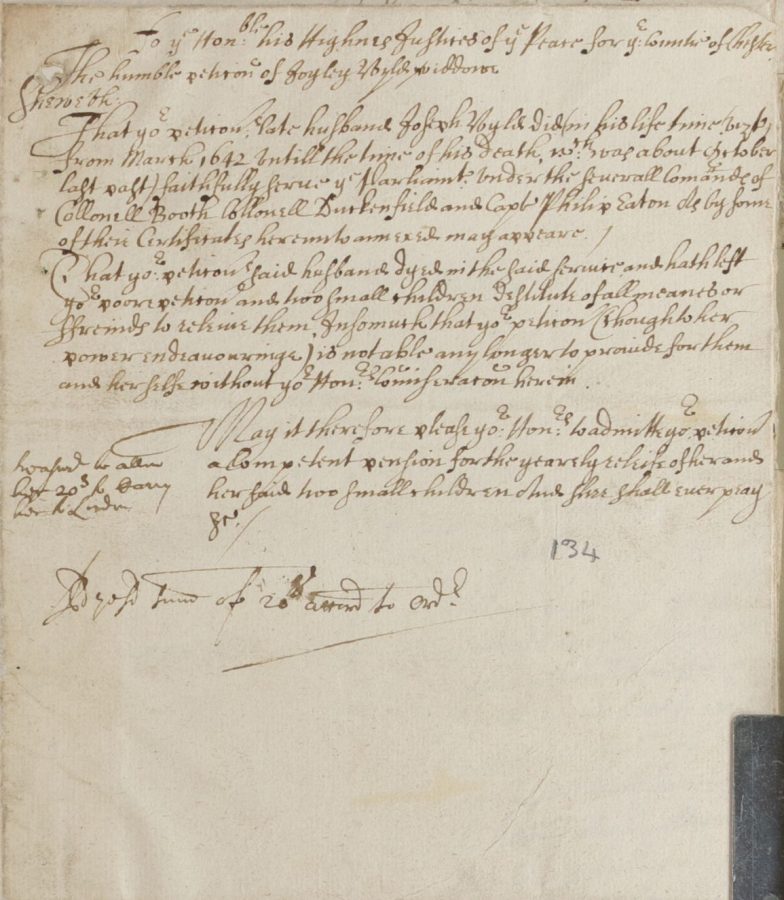 To ye Honble his Highnes Justices of ye Peace for ye Countie of Chester
The humble peticon of Joyley Vyld widdow
Sheweth.
That yor peticonrs late husband Joseph Vyld did (in his life time vizt
from March 1642 untill the time of his death, wch was about October
last past) faithfully serve ye Parliamt under the severall Comands of
Collonell Booth Collonell Duckenfield and Capt Philip Eaton As by some
of their Certificates hereunto annexed may appeare /
That yor peticonrs said husband dyed in the said service and hath left
yor poore peticonr and two small children destitute of all meanes or
ffreinds to releive them, Insomuch that yor peticonr (though to her
power endeavouringe) is not able any longer to provide for them
and her selfe without yor Honrs Comiseracon herein.
May it therefore please yor Honrs to admitte yor peticonr
a Competent pension for the yearely releife of her and
her said two small children And shee shall ever pray
&c. /
her 20s to
her to
134
sume of 20s accord to Ordr